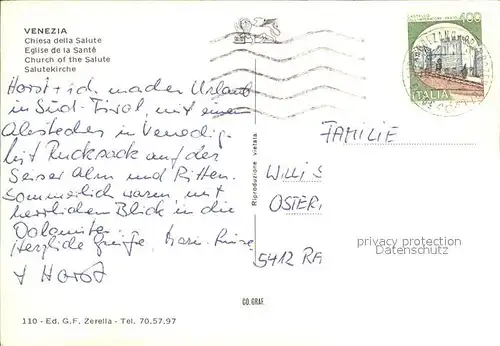 VENEZIA
Chiesa della Salute
Eglise de la Santè
Church of the Salute
Salutekirche
Horst + ich machen Urlaub
in Süd-Tirol, mit einem
Abstecher in Venedig.
Mit Rucksack auf der
Seiser Alm und Ritten.
Sommerlich waren, mit
herrlichem Blick in die
Dolomiten.
Herzliche Grüße,
+ Horst
110 - Ed. G.F. Zerella - Tel. 70.57.97
Riproduzione vietata
CO. GRAF.
400
ITALIA
FAMILIE
WILLI S
OSTER
5412 RA
privacy protection
Datenschutz